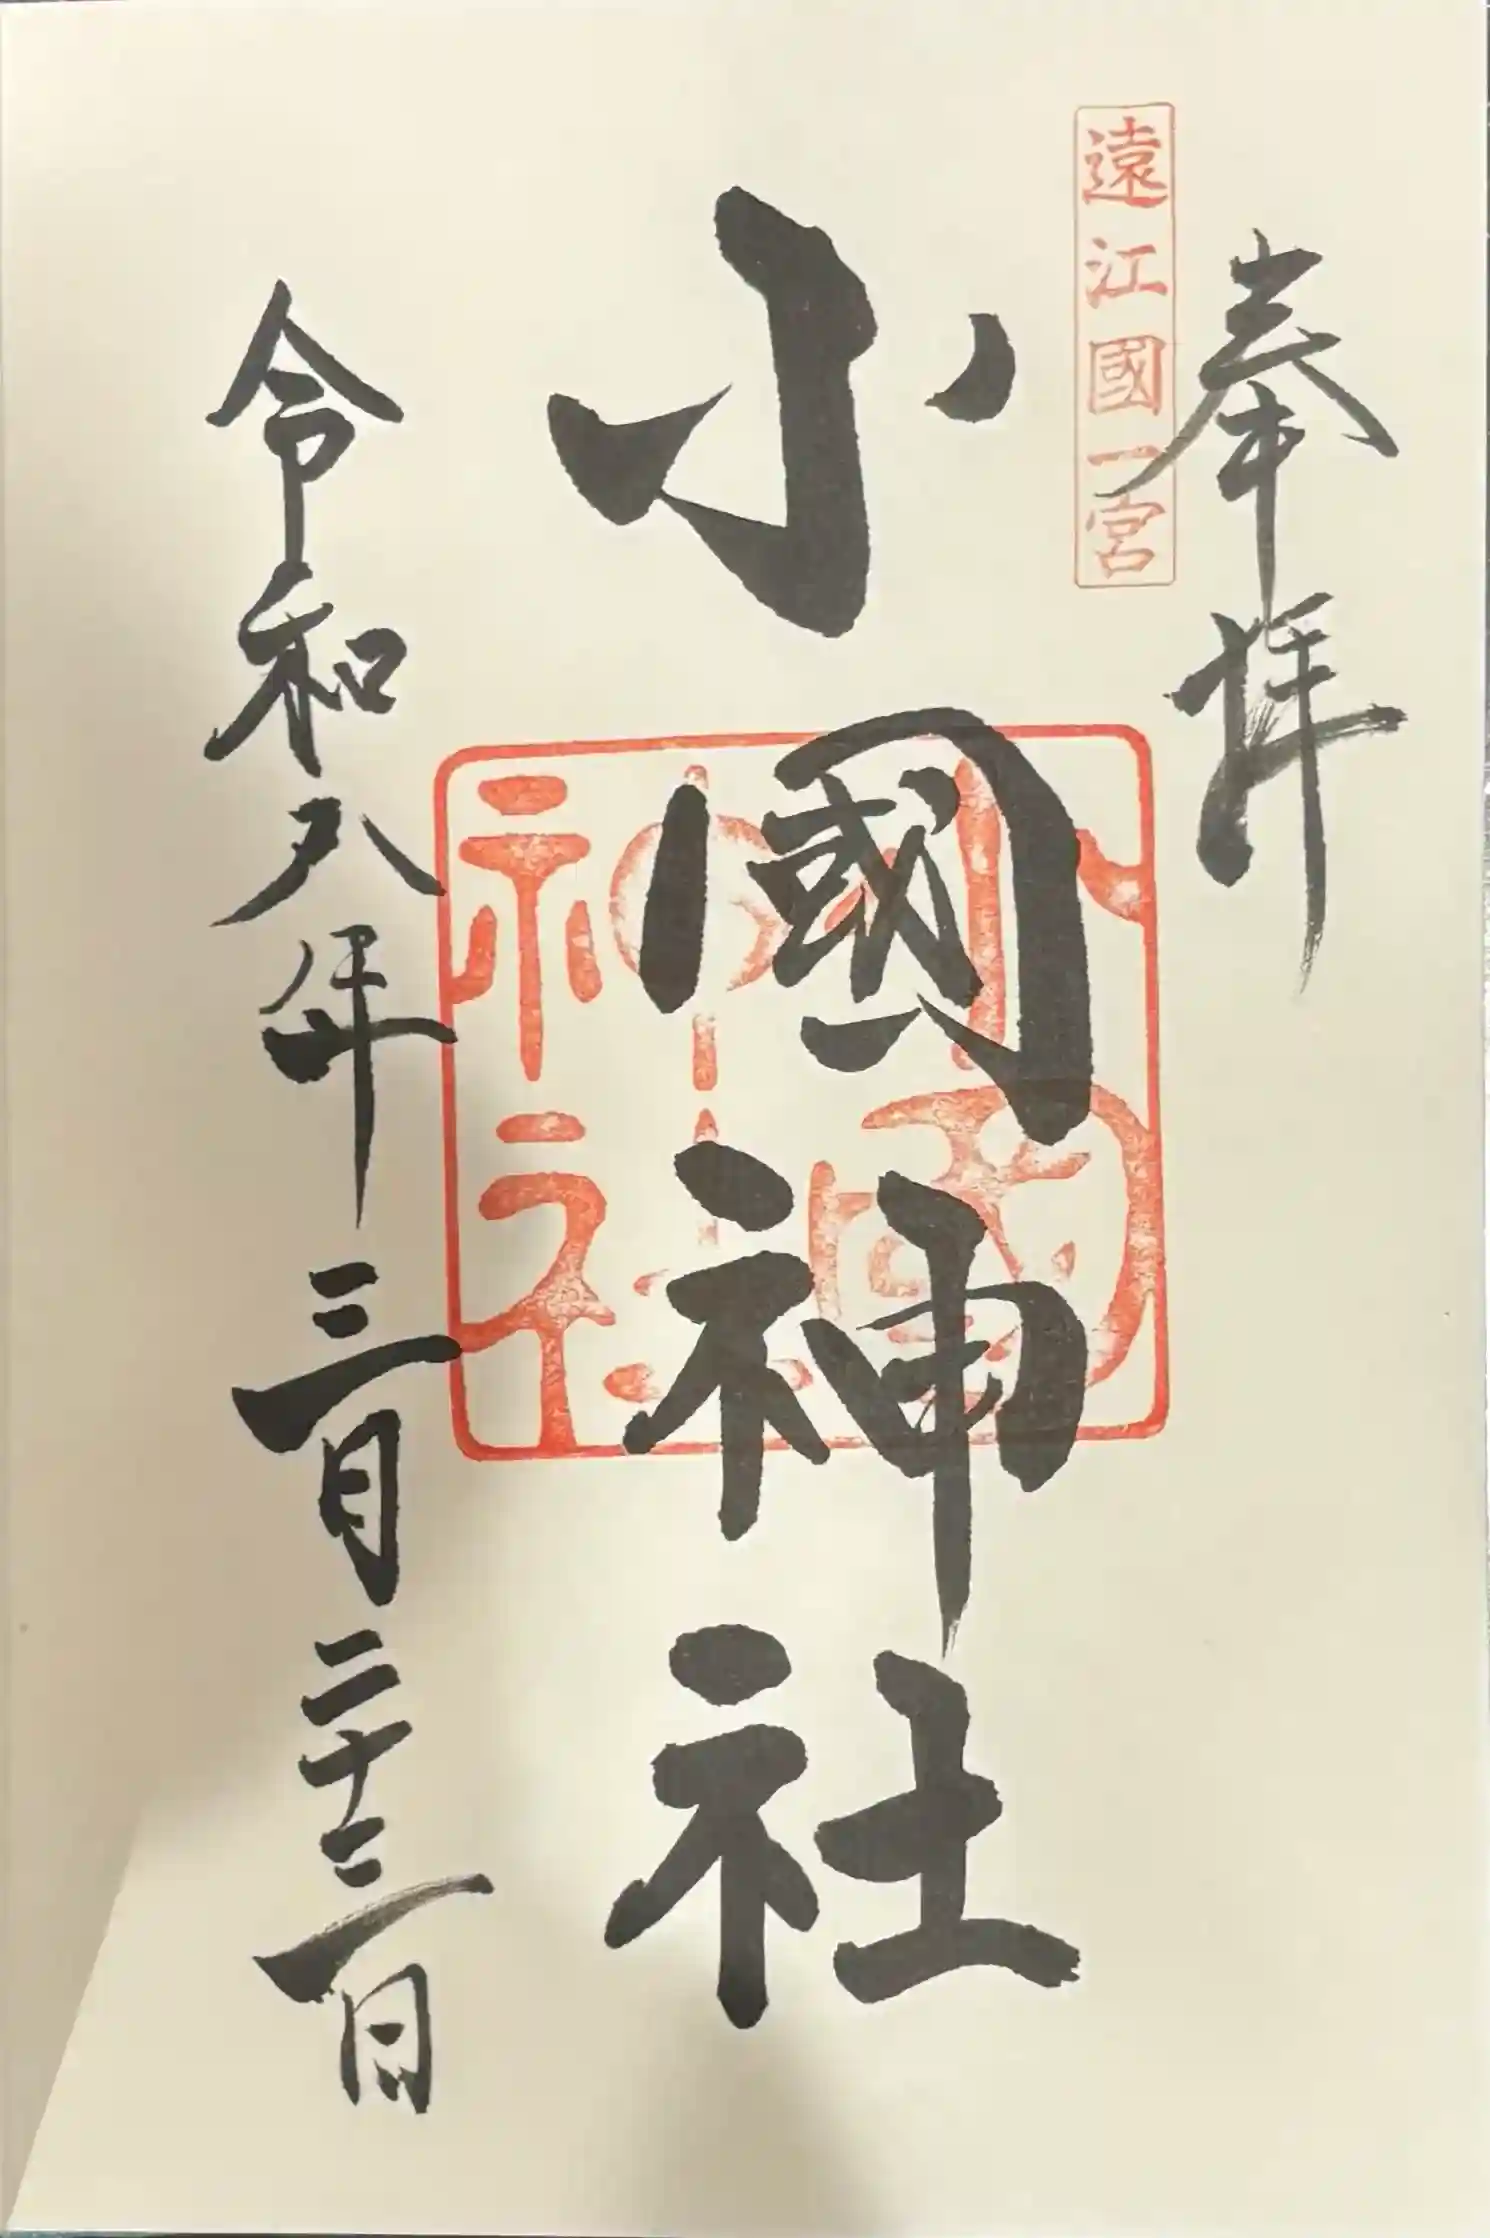 奉拝
遠江國一宮
小國神社
小國神社
令和八年三月二十三日